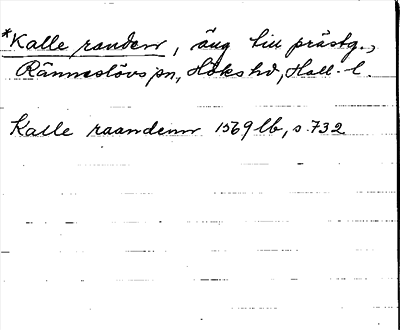 *Kalle randenr, äng till prästg.,
Ränneslövs sn, Höks hd, Hall. l.
Kalle raandenn 1569 lb, s. 732